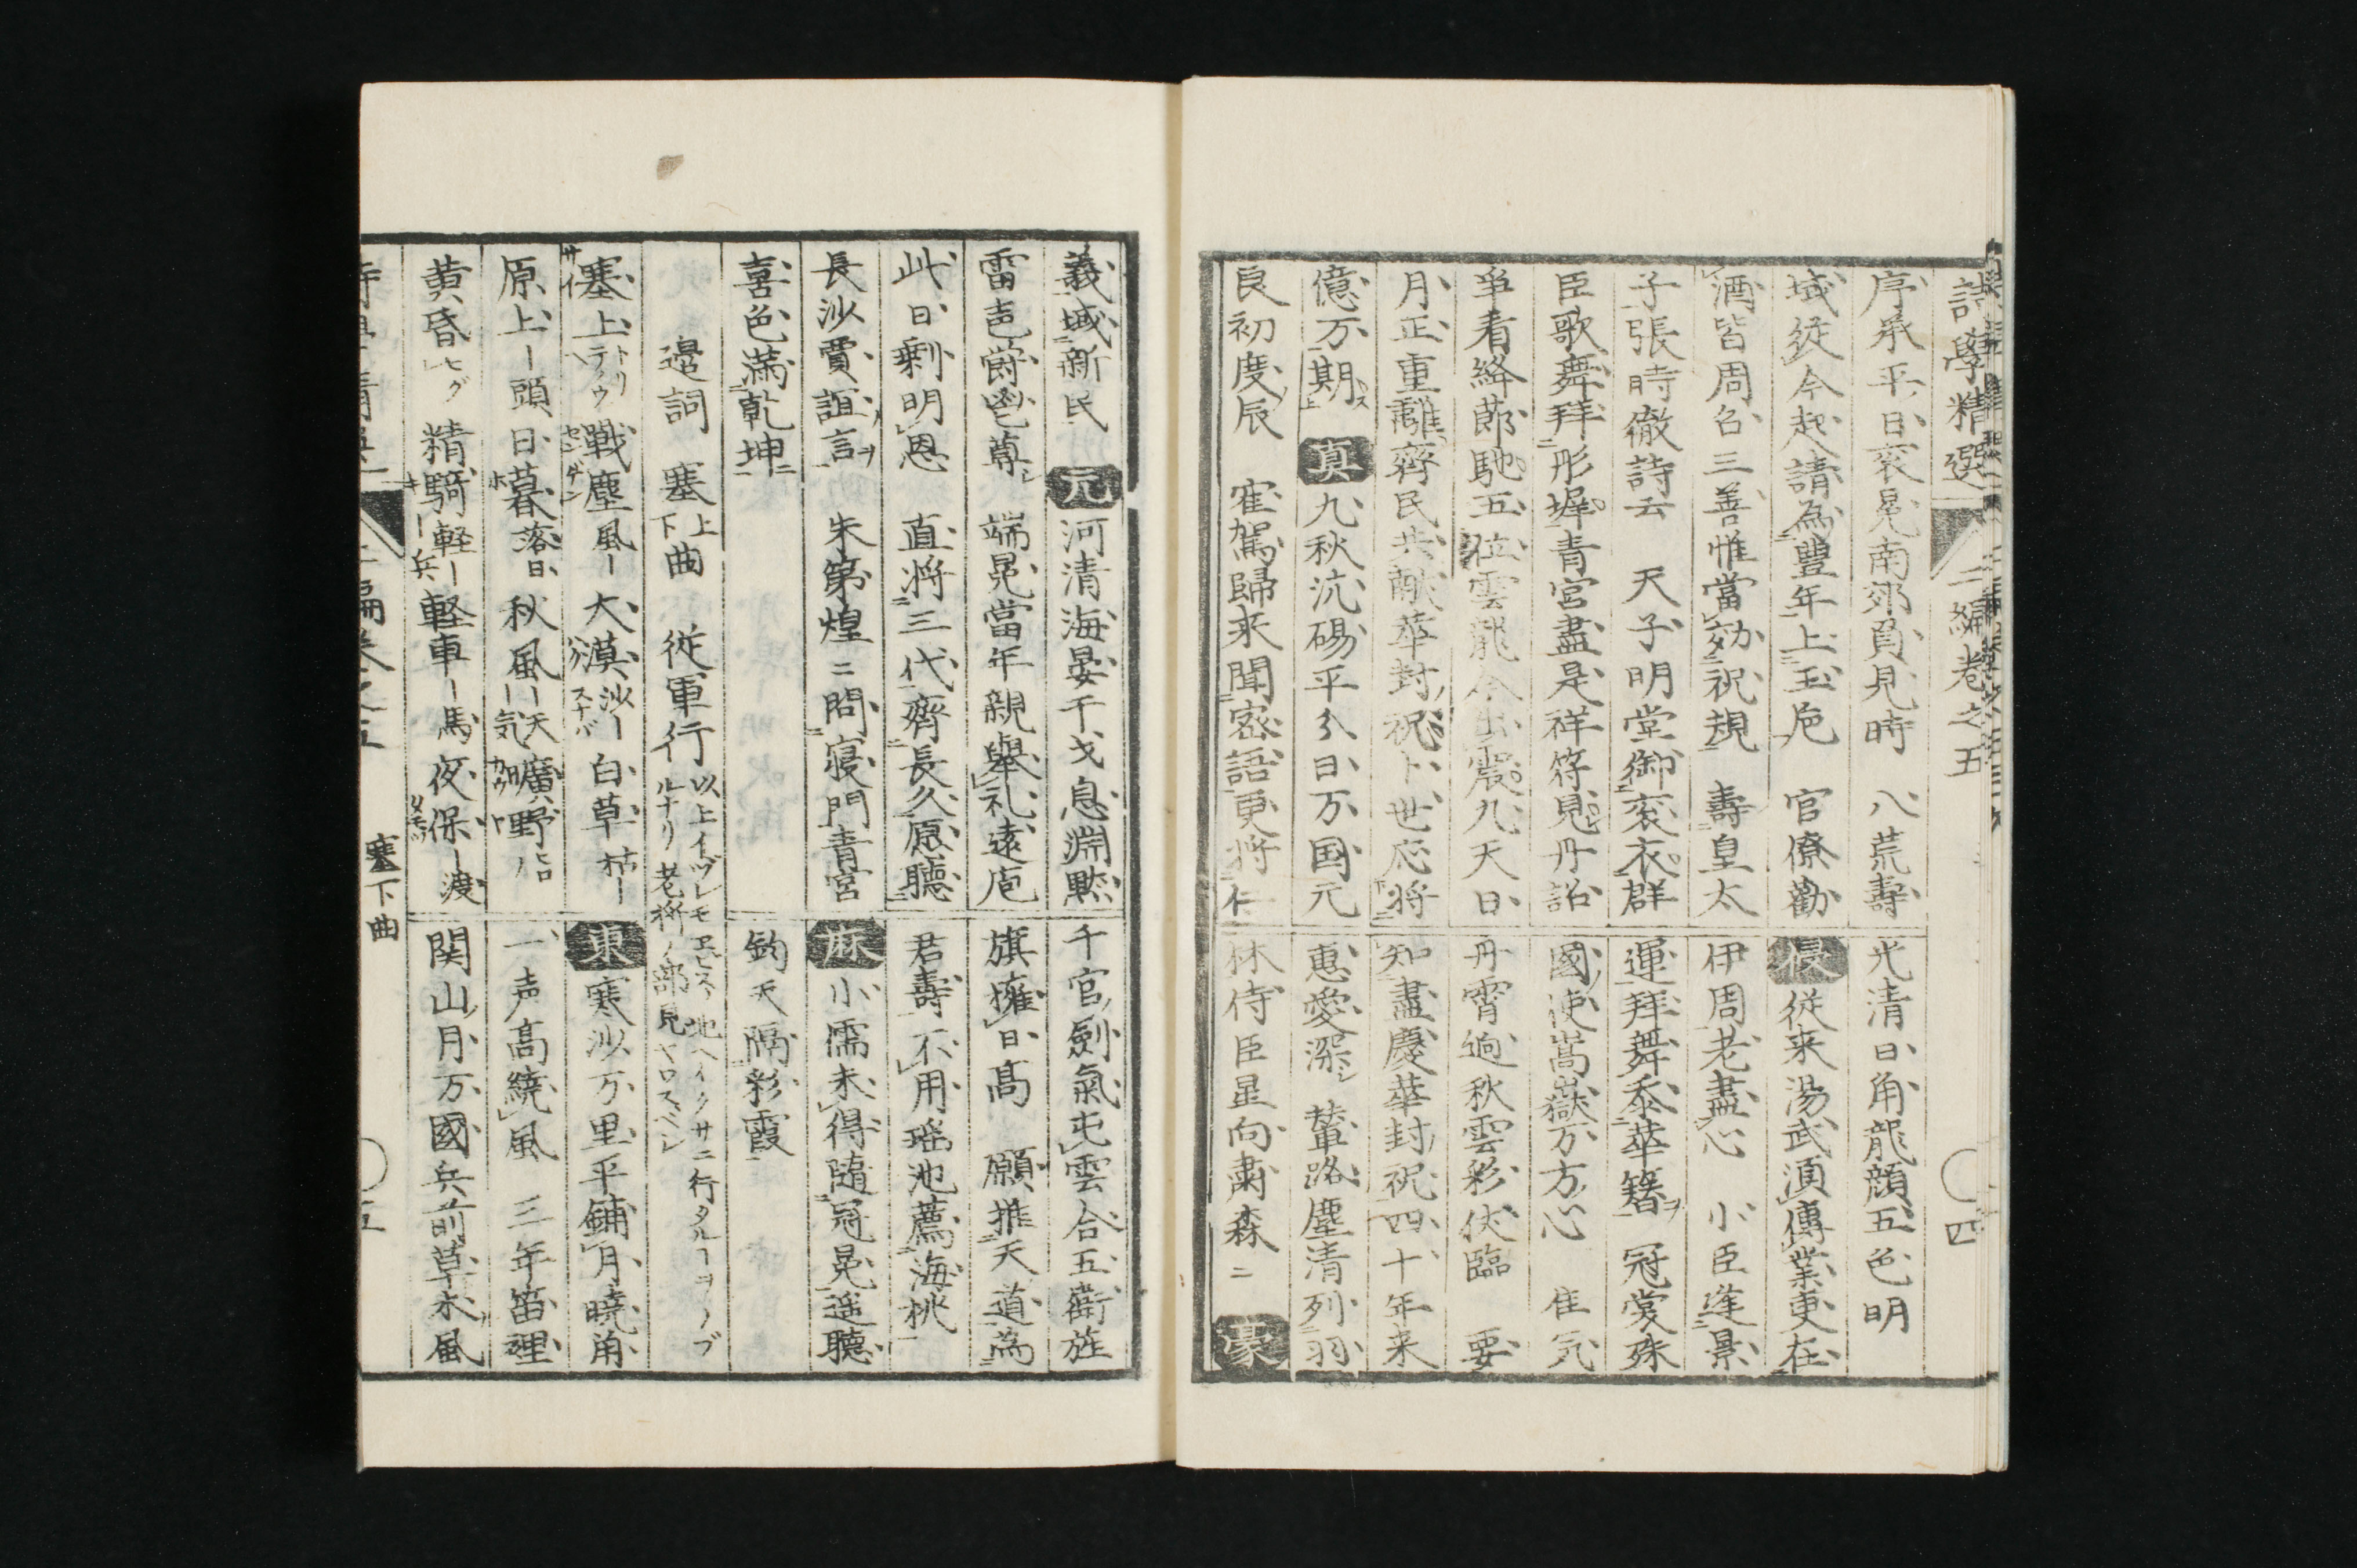 詩學精選 二編卷之五 四
序承平日袞冕南郊負見時 八荒壽
域従今起請為豊年上玉巵 官僚勸
酒皆周召三善惟當効祝規 壽皇太
子張時徹詩云 天子明堂御袞衣群
臣歌舞拜形墀青宮盡是祥符見丹詔
爭看絳節馳五位雲龍今出震九天日
月正重離齊民共献華封祝卜世応将
億万期 真 九秋沆碭平分日万国元
良初度辰 寉駕歸来聞密語更将仁
光清日角龍顔五色明
侵 従来湯武湏傳業更在
伊周老盡心 小臣逢景
運拜舞黍華簪 冠裳殊
國使嵩嶽万方心 隹気
丹霄逈秋雲彩伏臨 要
知盡慶華封祝四十年来
惠愛深 輦路塵清列羽
林侍臣星向肅森ニ 豪
義域新民 元 河清海晏干戈息淵黙
雷声爵鬯尊 端冕當年親舉礼遠庖
此日剩明恩 直将三代齊長久原聽
長沙賈誼言 朱第煌ニ問寝門青宮
喜色滿乾坤
千官劍氣屯雲合五衛旌
旗擁日高 願推天道為
君壽不用瑶池薦海桃
麻 小儒未得隨冠冕遥聽
鈞天隔彩霞
邉詞 塞上下曲 従軍行 以上イヅレモヱビスノ地ヘイクサニ行タルヿヲノブ
ルナリ老将ノ部見ヤロスベシ
塞上 戰塵風ー 大漠沙ー 白草枯ー
原上ー頭 日暮落日 秋風ー天気 曠野
黄昏 精騎軽ー兵 軽車ー馬 夜保ー渡
東 寒沙万里平鋪月曉角
一声髙繞風 三年笛裡
関山月万國兵前草木風
塞下曲
五